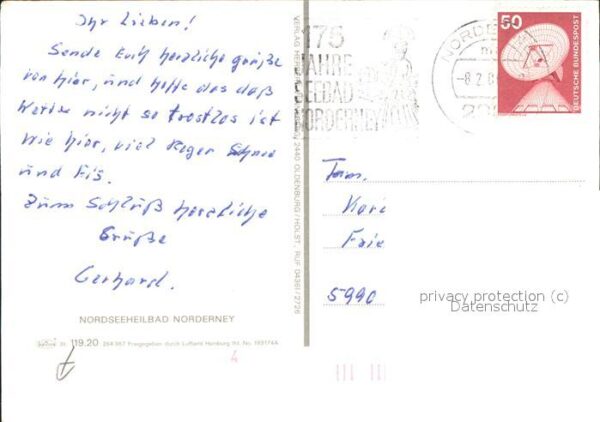 Ihr Lieben!
Sende Euch herzliche grüße
von hier, und hoffe das daß
Wetter nicht so trostlos ist
wie hier, viel Regen Schnee
und Eis.
Zum Schluß herzliche
Grüße
Gerhard.
NORDSEEHEILBAD NORDERNEY
119.20 Freigegeben durch Luftamt Hamburg
4
2440 OLDENBURG/HOLST., RUF 04361/2726
175
JAHRE
SEEBAD
NORDERNEY
NORDE
-8.2.8
50
DEUTSCHE BUNDESPOST
Fam.
Kari
Faie
5990
privacy protection (c)
Datenschutz